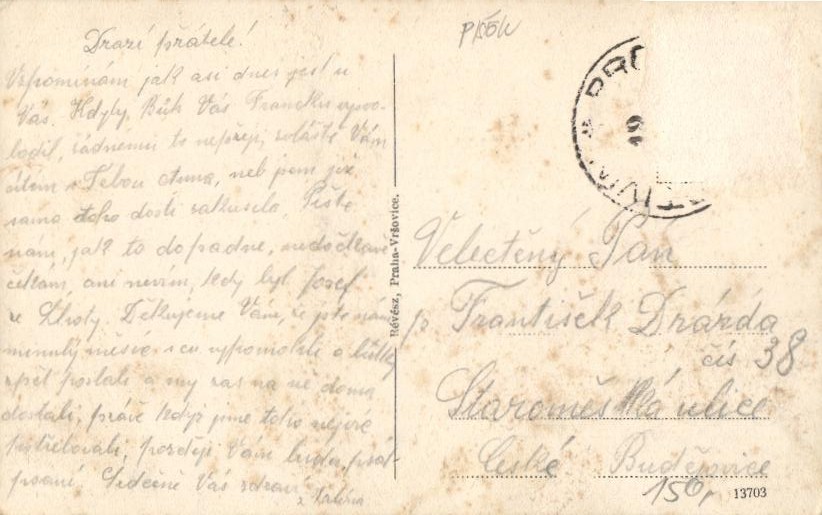 Drazí přátelé!
Vzpomínám jak asi dnes jest u
Vás. Kdyby Bůh Vás Francku vyvo-
lodil, žádnému to nepřeji, zvláště Vám
cítím s Tebou Anna, neb jsem již
sama toho dosti zakusila. Pište
nám, jak to dopadne, nedočkavě
čekám, ani nevím, kdy byl Josef
ze Lhoty. Děkujeme Vám, že jste nám
minulý měsíc vypomohli a lístky
zpět poslali a my zas na ně doma
dostali, právě když jsme toho nejvíc
potřebovali, později Vám budu psát
psaní. Srdečně Vás zdraví
P155/V
* PRO
19
Révész, Praha-Vršovice.
Velectěný Pán
p František Drázda
čís 38
Staroměstská ulice
České Budějovice
150,
13703